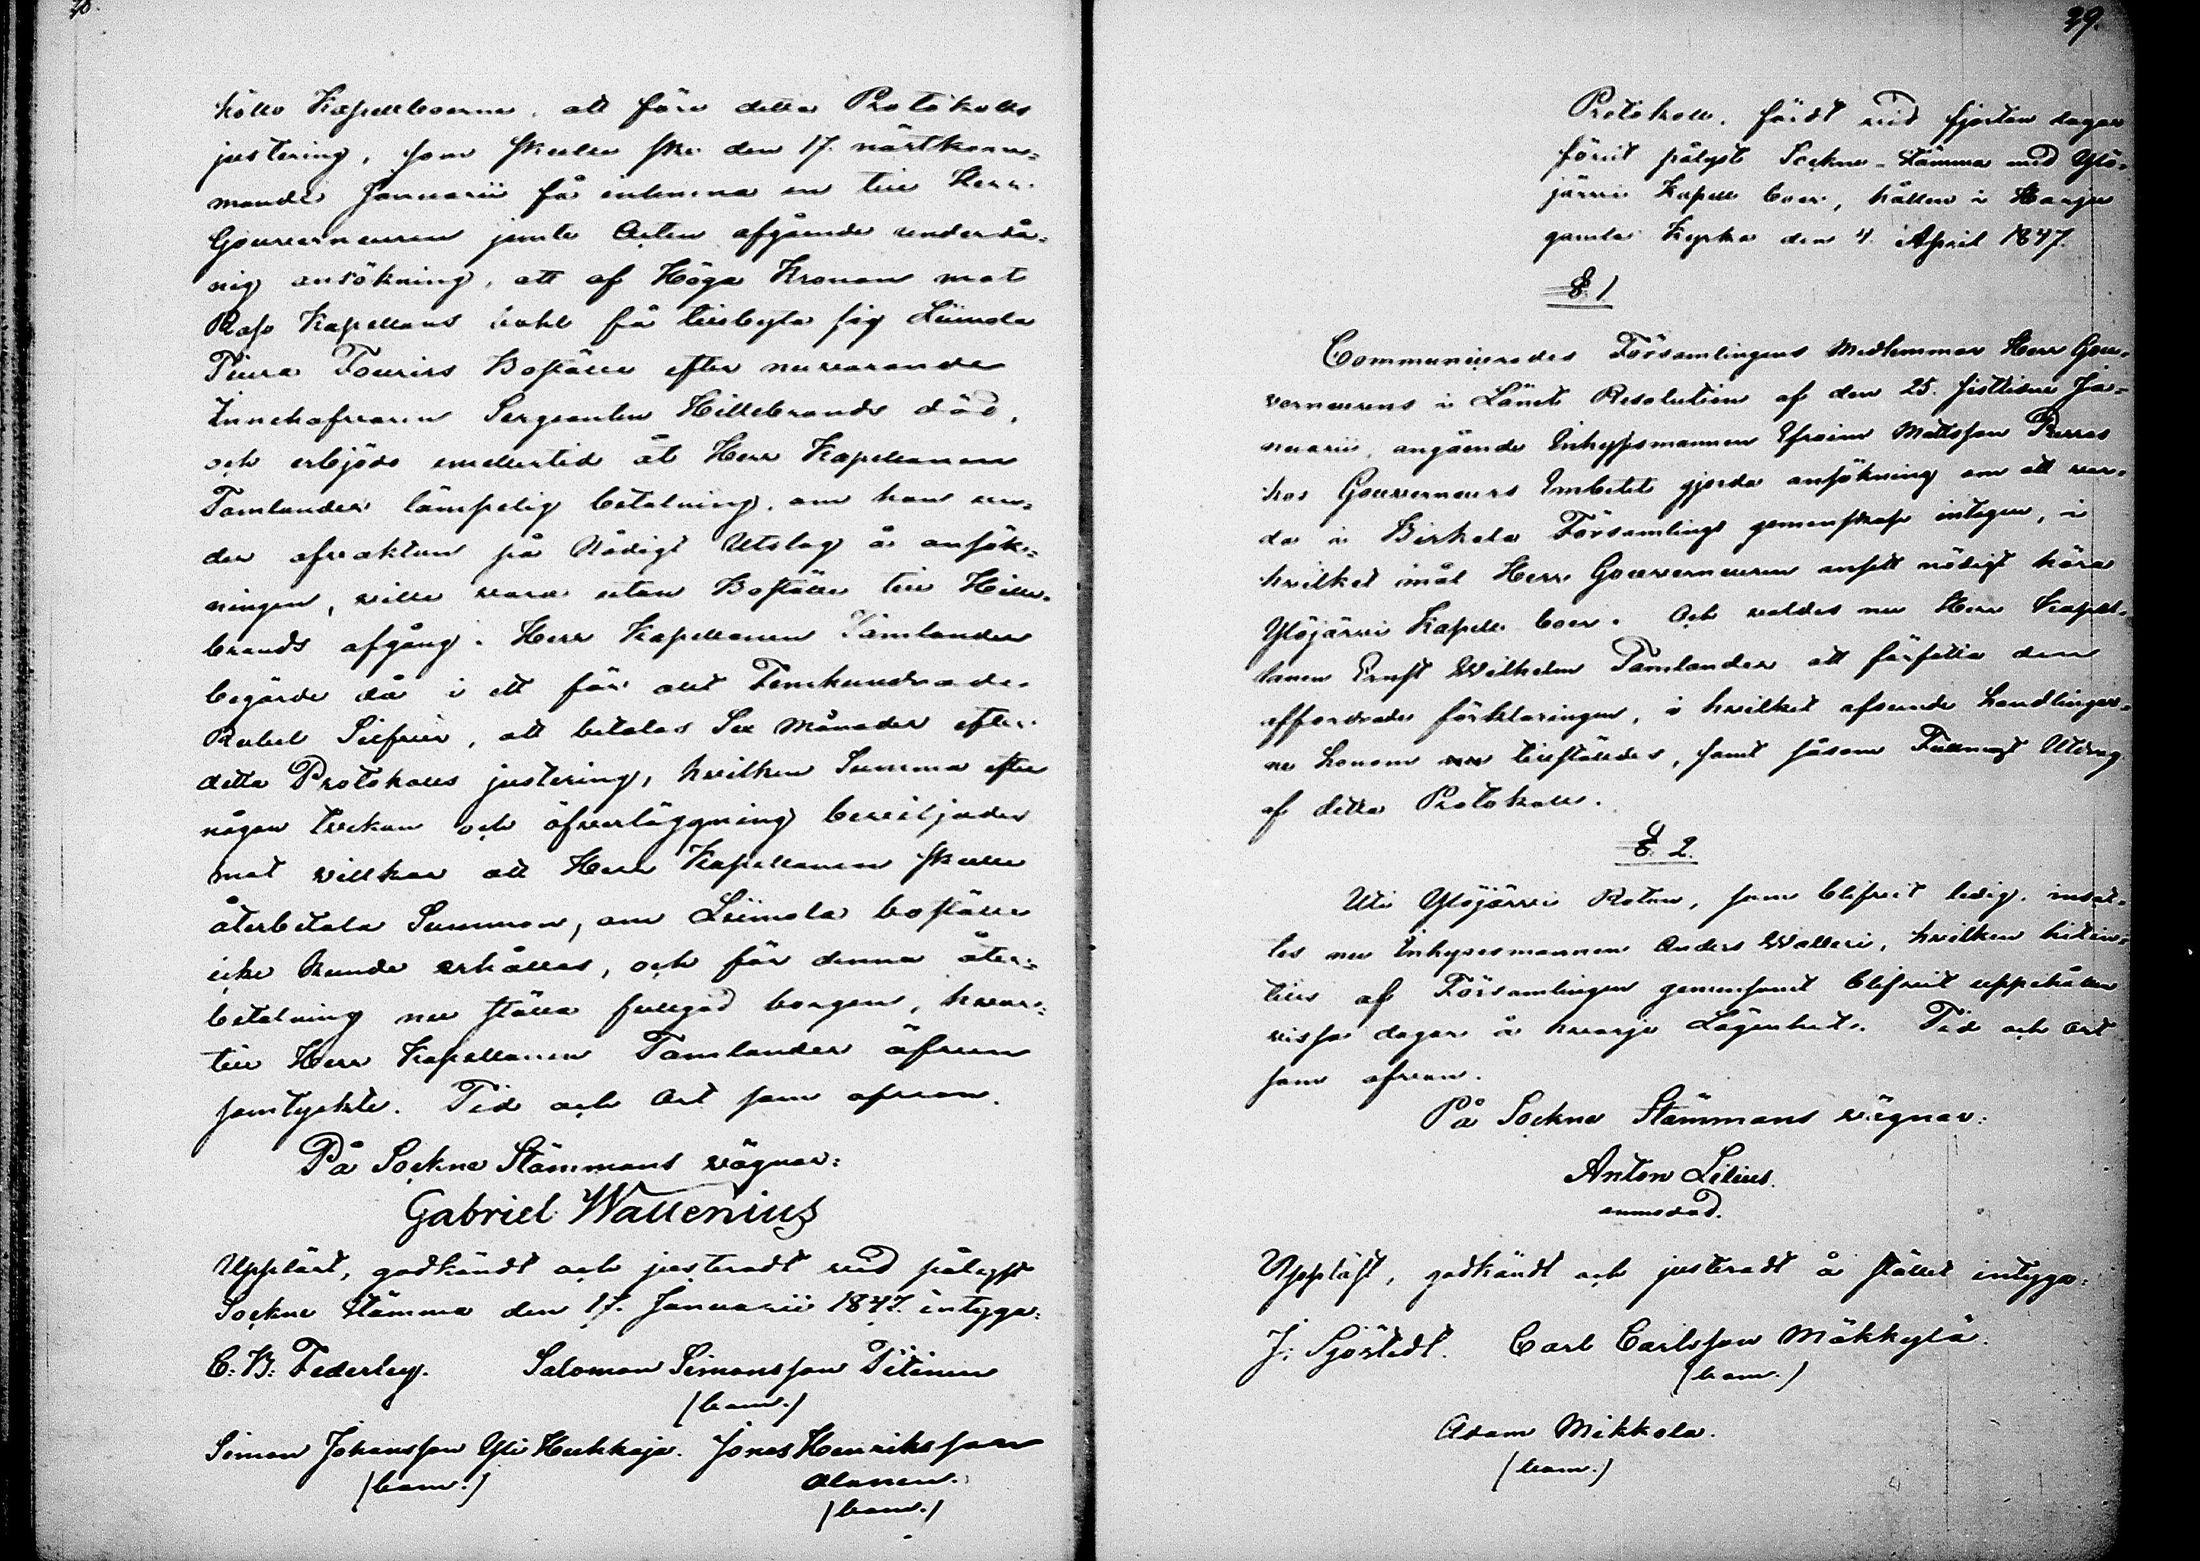 höllo Kapellboerne, att före detta Protokolls
justering, som skulle ske den 17. nästkom-
mande Januarii få inlemna en till Herr
Gouverneuren jemte Acten afgående underdå-
nig ansökning, att af Höga Kronan mot
Kapellans få tillbyta sig Liimola
Fourirs Boställe efter nuvarande
Innehafvaren Sergeanten Hillebrands död,
och erbjödo emellertid åt Herr Kapellanen
Tamlander lämpelig betalning, om han un-
der afvaktan på Nådigt Utslag å ansök-
ningen, ville vara utan Boställe till Hille-
brands afgång. Herr Kapellanen Tamlander
begärde då i ett för allt Femhundrade
Rubel Silfver, att betalas Sex Månader efter
detta Protokolls justering, hvilken Summa efter
någon tvekan och öfverläggning beviljades
mot villkor att Herr Kapellanen skulle
återbetala Summan, om Liimola boställe
icke kunde erhållas, och för denna åter-
betalning nu ställa fullgod borgen, hvar-
till Herr Kapellanen Tamlander äfven
samtyckte. Tid och Ort som ofvan.
På Sockne Stämmans vägnar:
Gabriel Wallenius
Uppläst, godkändt och justeradt vid pålyst
Sockne Stämma den 17. Januarii 1847. intyga:
C: B: Federley. Salomon Simonsson Pitinen
(bom.)
Simon Johansson Yli Hukkaja. Jonas Henriksson
(bom.) Alanen.
(bom.)
39.
Protokoll, fördt vid fjorton dagar
förut pålyst Sockne-Stämma med Ylö-
järvi Kapell boer, hållen i Harju
gamla Kyrka den 4. April 1847.
§. 1
Communicerades Församlingens Medlemmar Herr Gou-
verneurens i Länet Resolution af den 25. sistledne Ja-
nuarii, angående Inhysesmannen Efraim Mattsson
hos Gouverneurs Embetet gjorda ansökning om att var-
da i Birkala Församlings gemenskap intagen, i
hvilket mål Herr Gouverneuren ansett nödigt höra
Ylöjärvi Kapell boer. Och valdes nu Herr Kapel-
lanen Ernst Wilhelm Tamlander att författa den
affordrade förklaringen, i hvilket afseende handlingar-
ne honom tillställdes, samt såsom Fullmagt Utdrag
af detta Protokoll.
§. 2.
Uti Ylöjärvi Roten, som blifvit ledig, insat-
tes nu Inhysesmannen Anders Walleri, hvilken hitin-
tills af Församlingen gemensamt blifvit uppehållen
vissa dagar å hvarje Lägenhet. Tid och Ort
som ofvan.
På Sockne Stämmans vägnar:
Anton Lilius.
Uppläst, godkändt och justeradt å stället intyga:
J: Sjöstedt. Carl Carlsson Mäkkylä.
(bom.)
Adam Mikkola.
(bom.)